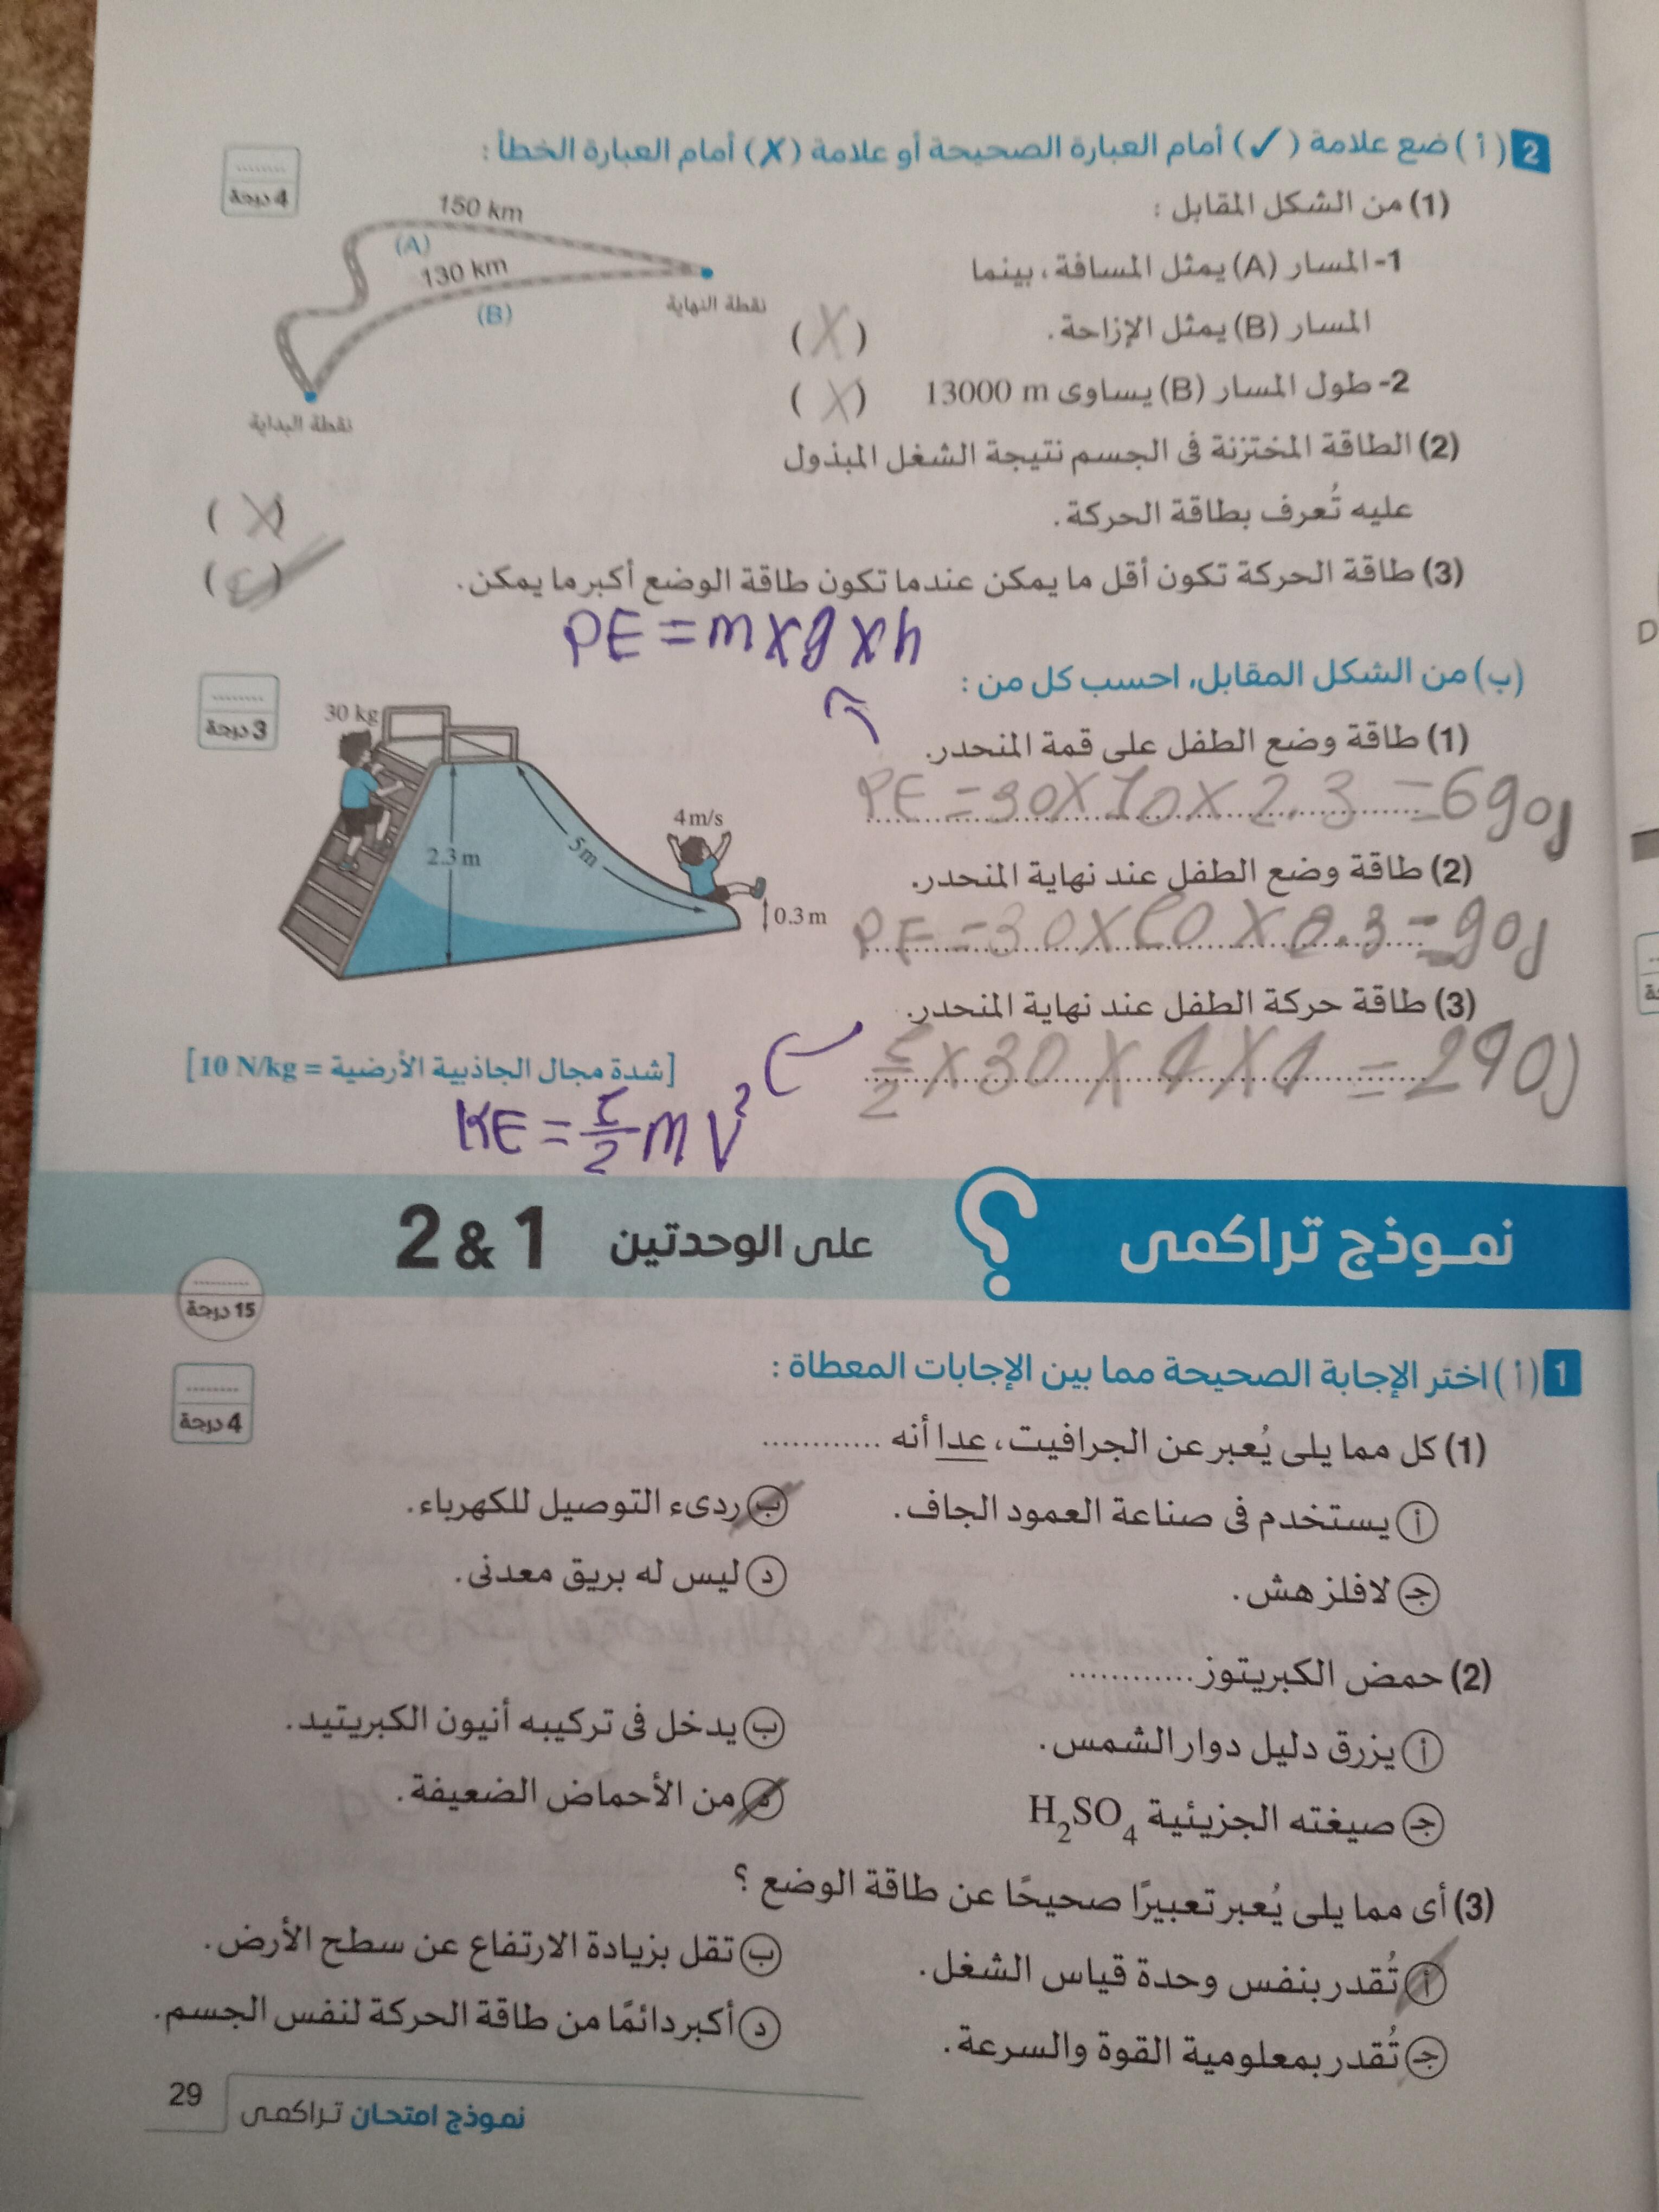 2 (أ) ضع علامة (✓) أمام العبارة الصحيحة أو علامة (✗) أمام العبارة الخطأ :
4 درجة
(1) من الشكل المقابل :
1- المسار (A) يمثل المسافة، بينما
المسار (B) يمثل الإزاحة. (X)
2- طول المسار (B) يساوى 13000 m (X)
150 km
(A)
130 km
(B)
نقطة النهاية
نقطة البداية
(2) الطاقة المختزنة فى الجسم نتيجة الشغل المبذول
عليه تُعرف بطاقة الحركة. (X)
(3) طاقة الحركة تكون أقل ما يمكن عندما تكون طاقة الوضع أكبر ما يمكن.
PE = m x g x h
(ب) من الشكل المقابل، احسب كل من :
3 درجة
(1) طاقة وضع الطفل على قمة المنحدر.
PE = 30 X 10 X 2.3 = 690J
(2) طاقة وضع الطفل عند نهاية المنحدر.
PE = 30 X 10 X 0.3 = 90J
(3) طاقة حركة الطفل عند نهاية المنحدر.
1/2 X 30 X 4 X 4 = 240J
30 kg
2.3 m
5 m
4 m/s
0.3 m
[شدة مجال الجاذبية الأرضية = 10 N/kg]
KE = 1/2 m V²
نموذج تراكمى ؟ على الوحدتين 1 & 2
15 درجة
1 (أ) اختر الإجابة الصحيحة مما بين الإجابات المعطاة :
4 درجة
(1) كل مما يلى يُعبر عن الجرافيت، عدا أنه ............
أ يستخدم فى صناعة العمود الجاف.
ب ردىء التوصيل للكهرباء.
جـ لافلز هش.
د ليس له بريق معدنى.
(2) حمض الكبريتوز ............
أ يزرق دليل دوار الشمس.
ب يدخل فى تركيبه أنيون الكبريتيد.
جـ صيغته الجزيئية H₂SO₄
د من الأحماض الضعيفة.
(3) أى مما يلى يُعبر تعبيرًا صحيحًا عن طاقة الوضع ؟
أ تُقدر بنفس وحدة قياس الشغل.
ب تقل بزيادة الارتفاع عن سطح الأرض.
جـ تُقدر بمعلومية القوة والسرعة.
د أكبر دائمًا من طاقة الحركة لنفس الجسم.
نموذج امتحان تراكمى
29